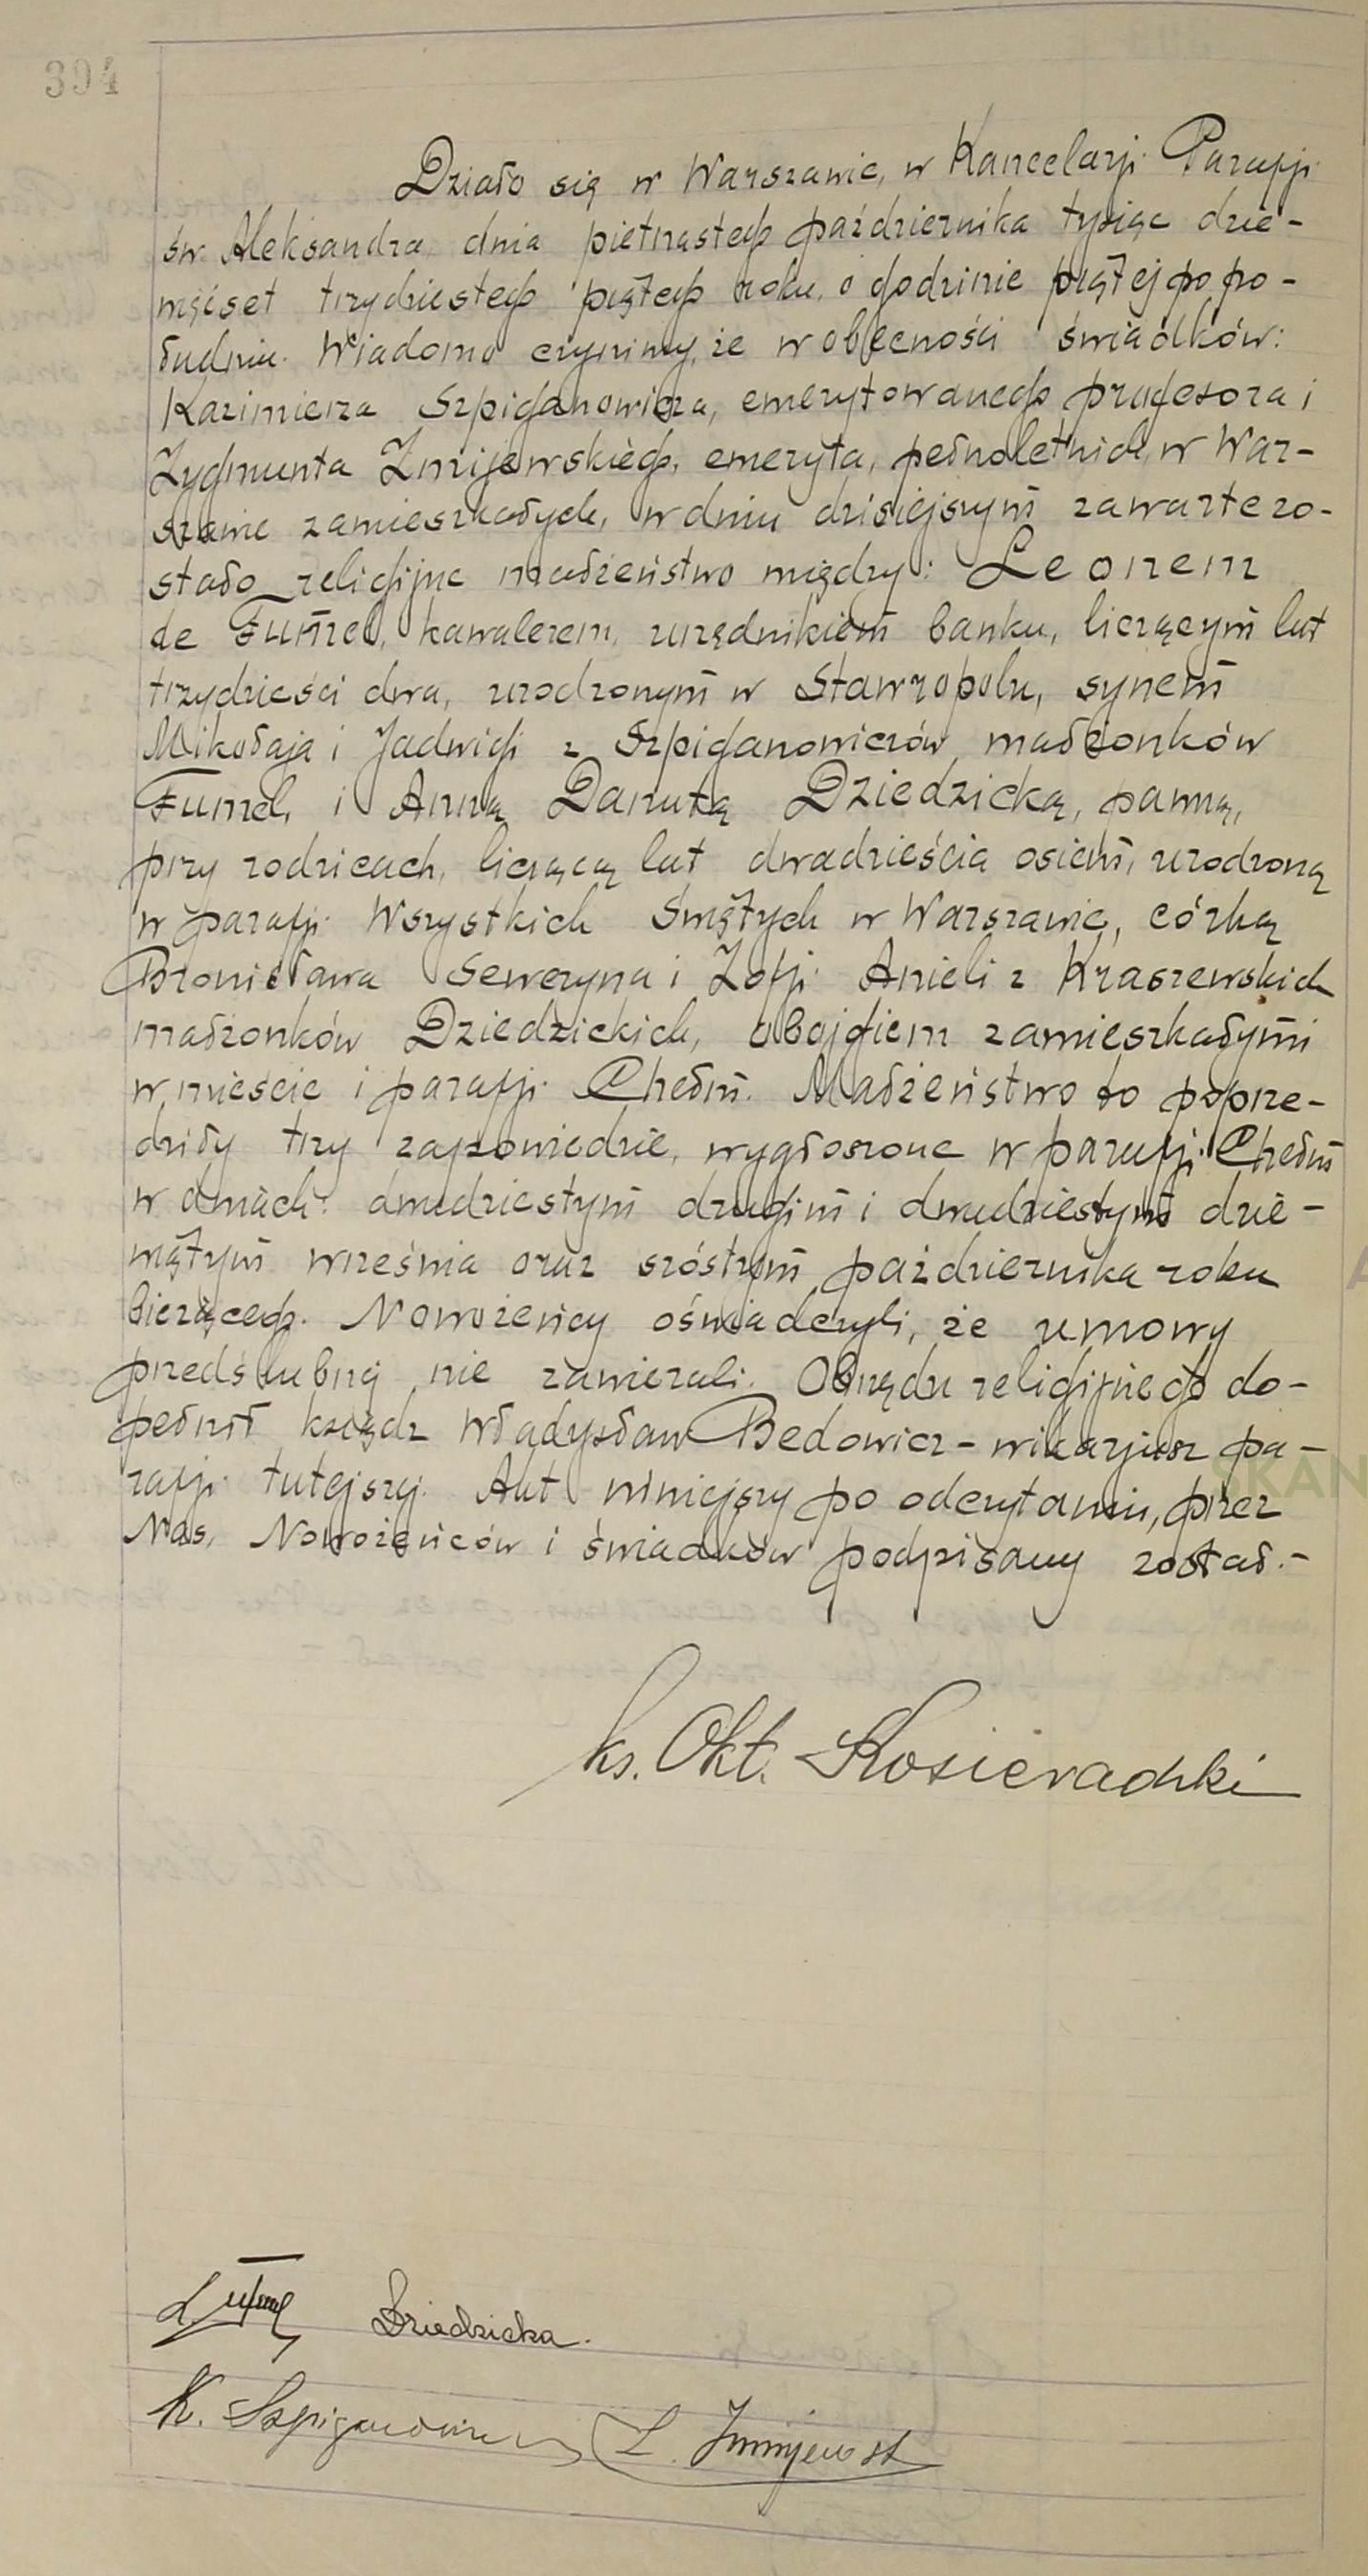 394
Działo się w Warszawie, w Kancelarji Parafji
św. Aleksandra dnia piętnastego października tysiąc dzie-
więćset trzydziestego piątego roku, o godzinie piątej po po-
łudniu. Wiadomo czynimy, że w obecności świadków:
Kazimierza Szpiganowicza, emerytowanego profesora i
Zygmunta Żmijewskiego, emeryta, pełnoletnich, w War-
szawie zamieszkałych, w dniu dzisiejszym zawarte zo-
stało religijne małżeństwo między: Leonem
de Fumel, kawalerem, urzędnikiem banku, liczącym lat
trzydzieści dwa, urodzonym w Stawropolu, synem
Mikołaja i Jadwigi z Szpiganowiczów małżonków
Fumel, i Anną Danutą Dziedzicką, panną,
przy rodzicach, liczącą lat dwadzieścia osiem, urodzoną
w parafji Wszystkich Świętych w Warszawie, córką
Bronisława Seweryna i Zofji Anieli z Kraszewskich
małżonków Dziedzickich, obojgiem zamieszkałymi
w mieście i parafji Chełm. Małżeństwo to poprze-
dziły trzy zapowiedzie, wygłoszone w parafji Chełm
w dniach: dwudziestym drugim i dwudziestym dzie-
wiątym września oraz szóstym października roku
bieżącego. Nowożeńcy oświadczyli, że umowy
przedślubnej nie zawierali. Obrzędu religijnego do-
pełnił ksiądz Władysław Bedowicz - wikarjusz pa-
rafji tutejszej. Akt niniejszy po odczytaniu, przez
Nas, Nowożeńców i świadków podpisany został.-
ks. Okt. Kosieradzki
SKAN
L. Fumel Dziedzicka.
K. Szpiganowicz Z. Żmijewski